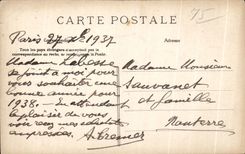 CARTE POSTALE
75
Paris 27 1937
Tous les pays étrangers n'acceptent pas la correspondance au recto.
Adresse
Madame Labesse
se joint à moi pour
vous souhaiter une
bonne année pour
1938. En attendant
le plaisir de vous
voir
empressées.
Madame Monsieur
Sauvanet
et famille
Nanterre